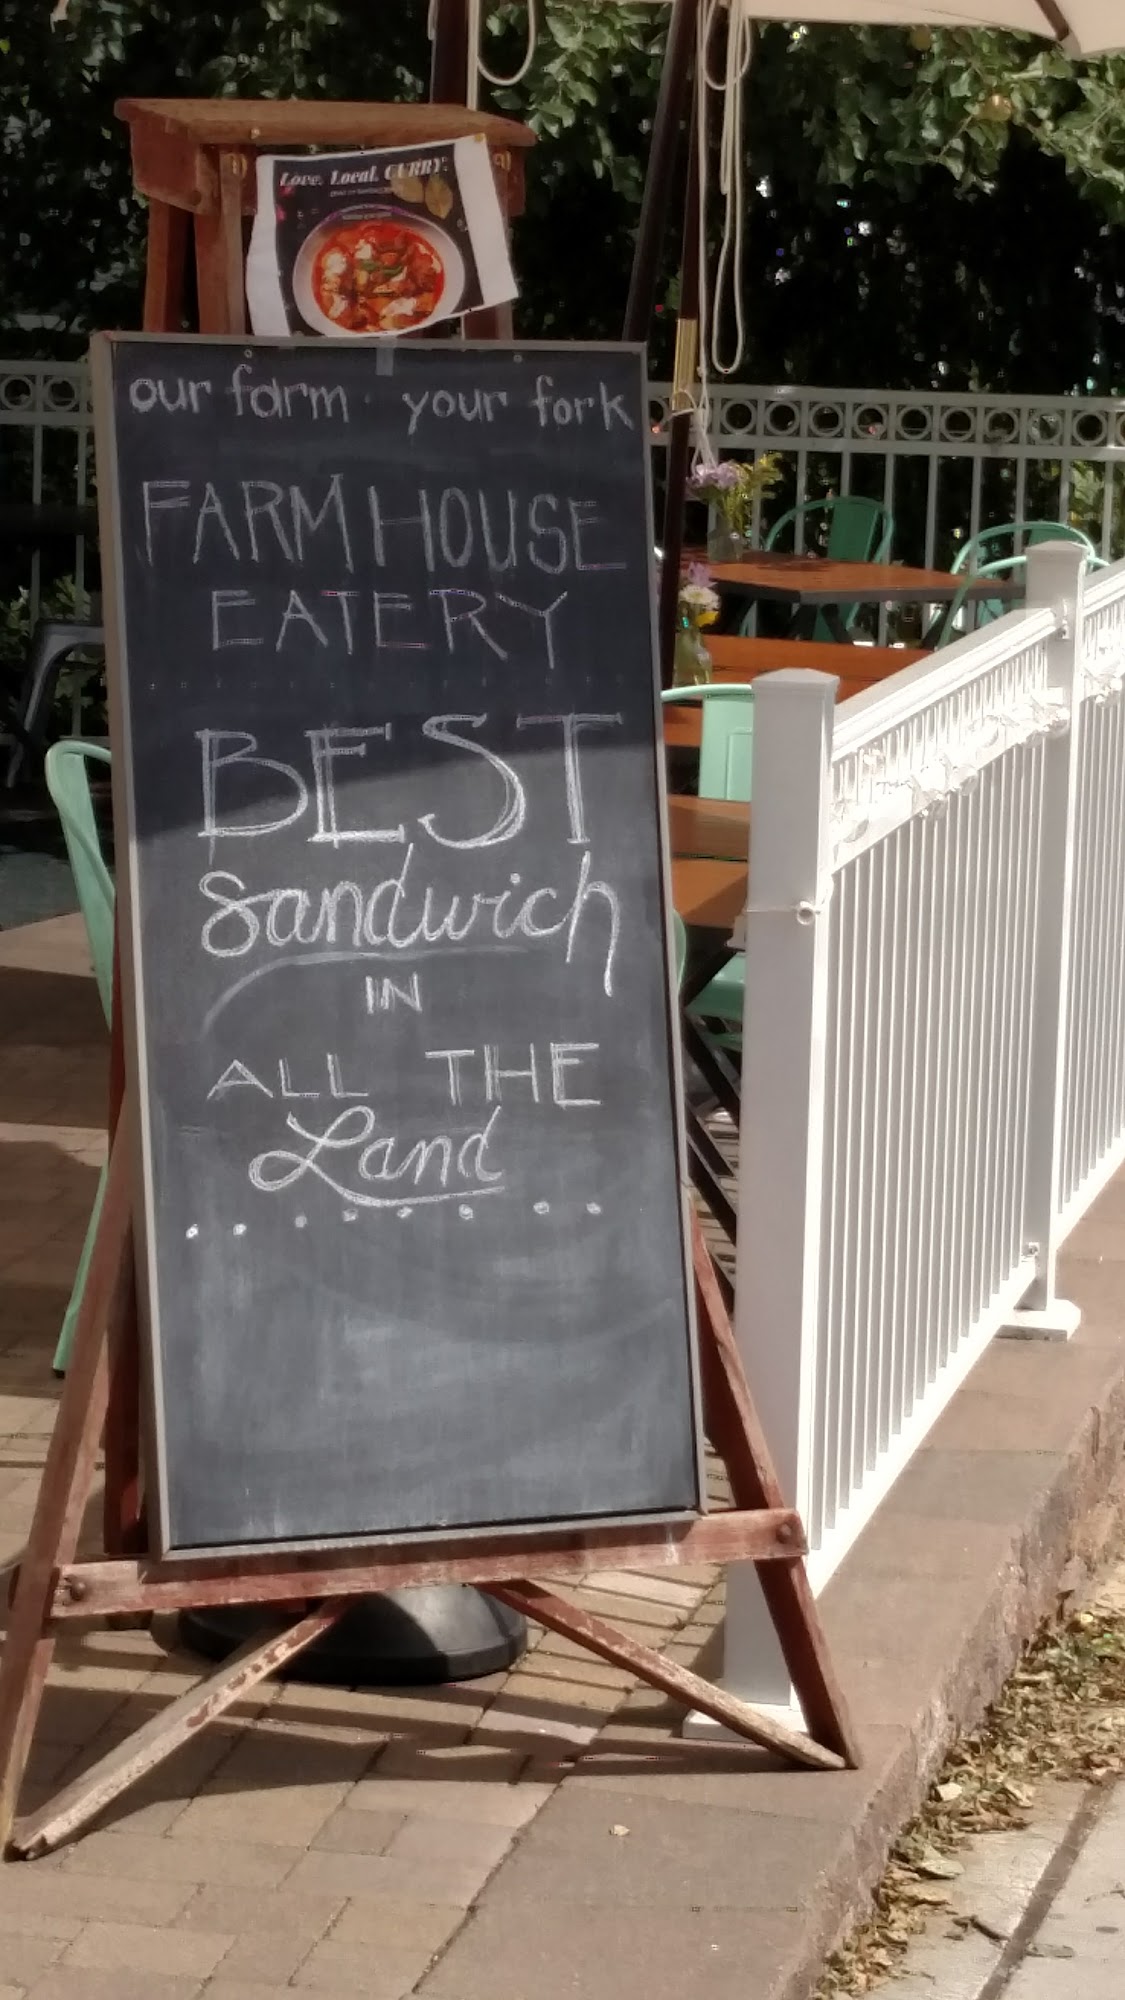 Love. Local. CURRY.
our farm · your fork
FARM HOUSE
EATERY
BEST
Sandwich
IN
ALL THE
Land